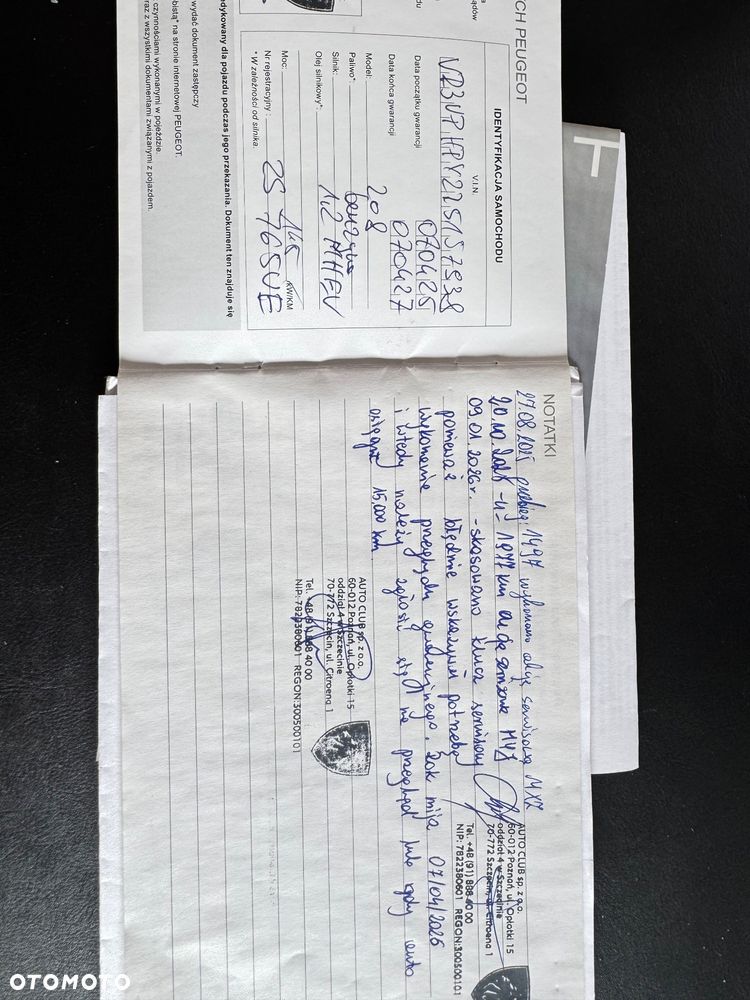 CH PEUGEOT
IDENTYFIKACJA SAMOCHODU
V.I.N.
Data początku gwarancji
070425
Data końca gwarancji
070427
Model:
208
Paliwo*:
benzyna
Silnik:
1.2 MHEV
Olej silnikowy*:
Moc:
KW/KM
Nr rejestracyjny :
ZS 765VE
* W zależności od silnika.
dykowany dla pojazdu podczas jego przekazania. Dokument ten znajduje się
wydać dokument zastępczy
bistą" na stronie internetowej PEUGEOT.
czynnościami wykonanymi w pojeździe.
raz z wszystkimi dokumentami związanymi z pojazdem.
NOTATKI
27.08.2025 przebieg: 1497 wykonano akcję serwisową MXZ
1977 km akcja serwisowa
09.01.2026r. - skasowano klucz serwisowy
ponieważ błędnie wskazywał potrzebę
wykonania przeglądu gwarancyjnego. Rok mija 07/04/2026
i wtedy należy zgłosić się na przegląd lub gdy auto
osiągnie 15.000 km.
AUTO CLUB sp. z o.o.
60-012 Poznań, ul. Opłotki 15
oddział 4 w Szczecinie
70-772 Szczecin, ul. Citroena 1
Tel. +48 (91) 888 40 00
NIP: 7822380601 REGON:300500101
AUTO CLUB sp. z o.o.
60-012 Poznań, ul. Opłotki 15
oddział 4 w Szczecinie
70-772 Szczecin, ul. Citroena 1
Tel. +48 (91) 888 40 00
NIP: 7822380601 REGON:300500101
OTOMOTO